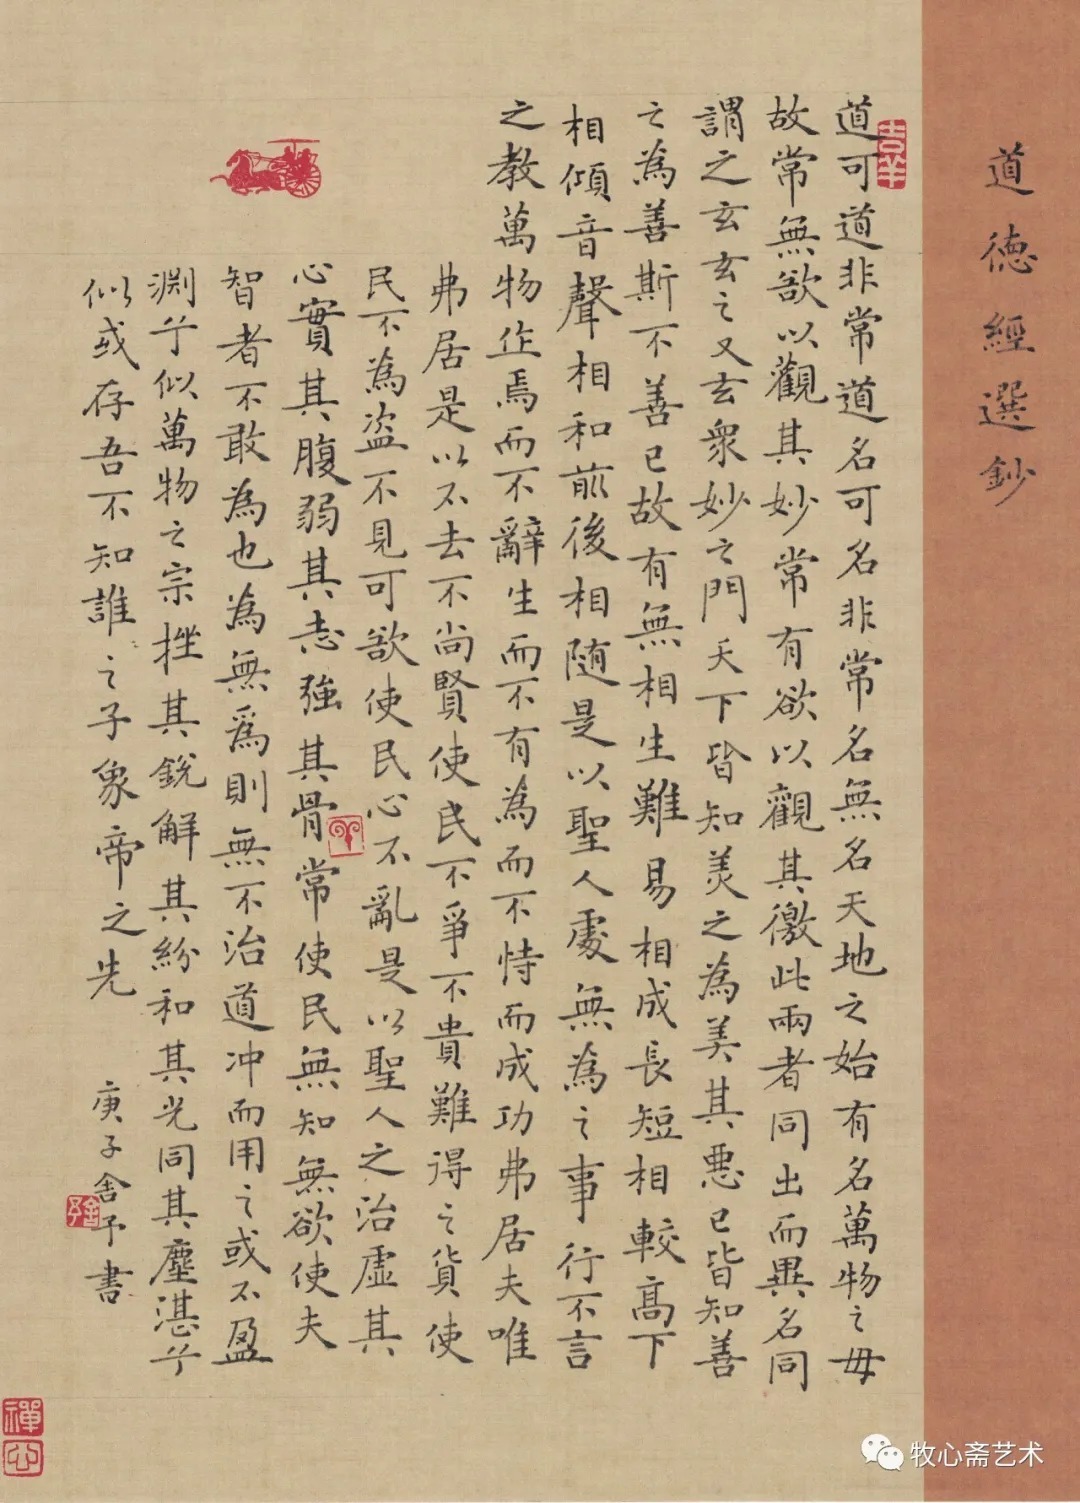 道德經選鈔
吉羊
道可道非常道名可名非常名無名天地之始有名萬物之毋
故常無欲以觀其妙常有欲以觀其徼此兩者同出而異名同
謂之玄玄之又玄衆妙之門天下皆知美之為美其惡已皆知善
之為善斯不善已故有無相生難易相成長短相較高下
相傾音聲相和前後相随是以聖人處無為之事行不言
之教萬物作焉而不辭生而不有為而不恃而成功弗居夫唯
弗居是以不去不尚賢使民不爭不貴難得之貨使
民不為盜不見可欲使民心不亂是以聖人之治虛其
心實其腹弱其志強其骨常使民無知無欲使夫
智者不敢為也為無為則無不治道冲而用之或不盈
淵兮似萬物之宗挫其銳解其紛和其光同其塵湛兮
似或存吾不知誰之子象帝之先
庚子舍予書
舍予
禪心
牧心斋艺术